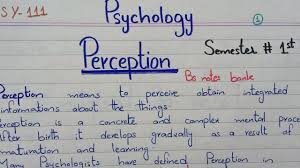 SY-111
Psychology
①
Perception
Semester # 1st
Bs notes bank
Perception means to perceive obtain integrated
informations about the things.
Perception is a concrete and complex mental proce
After birth it develops gradually as a result of
maturation and learning.
Many Psychologists have defined Perception in